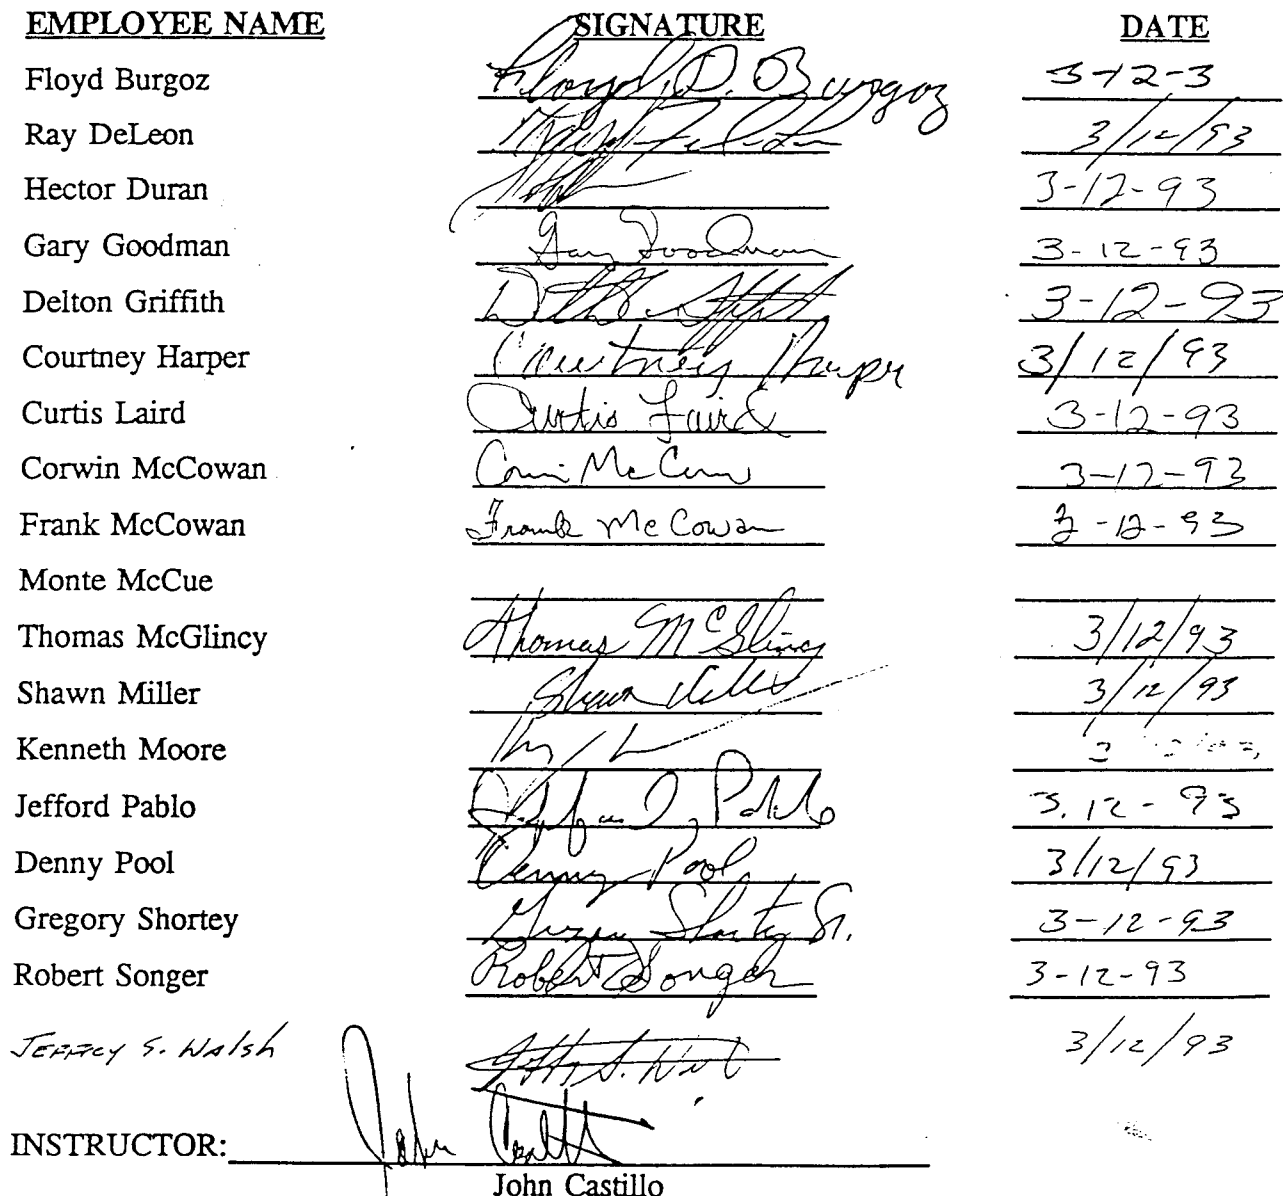 EMPLOYEE NAME SIGNATURE DATE
Floyd Burgoz Floyd D. Burgoz 3-12-3
Ray DeLeon 3/12/93
Hector Duran 3-12-93
Gary Goodman Gary Goodman 3-12-93
Delton Griffith 3-12-93
Courtney Harper Courtney Harper 3/12/93
Curtis Laird Curtis Laird 3-12-93
Corwin McCowan 3-12-93
Frank McCowan Frank McCowan 3-12-93
Monte McCue
Thomas McGlincy Thomas McGlincy 3/12/93
Shawn Miller Shawn 3/12/93
Kenneth Moore
Jefford Pablo Pablo 3.12-93
Denny Pool Denny Pool 3/12/93
Gregory Shortey Shortey Sr. 3-12-93
Robert Songer Robert Songer 3-12-93
Jeffrey S. Walsh 3/12/93
INSTRUCTOR: John
John Castillo